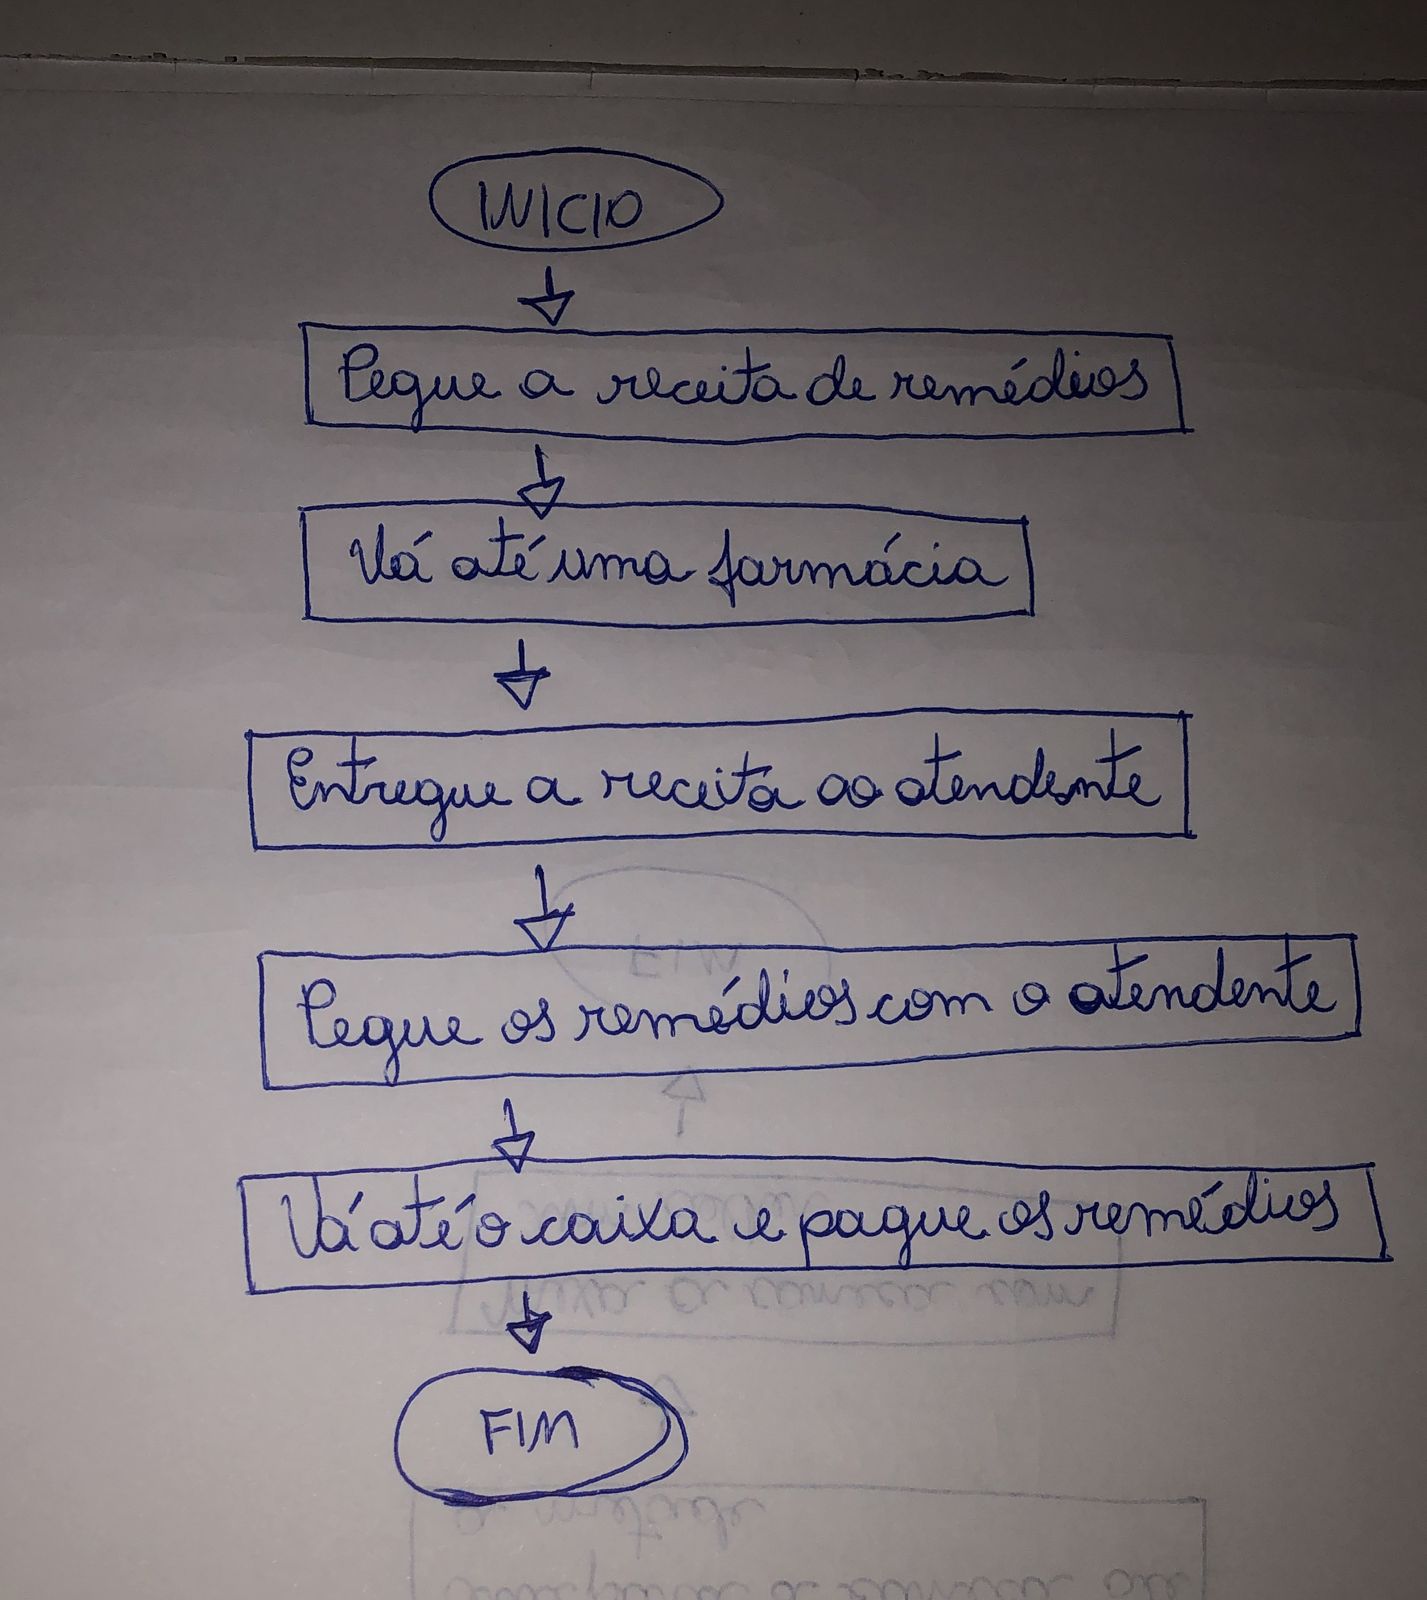 INICIO
Pegue a receita de remédios
Vá até uma farmácia
Entregue a receita ao atendente
Pegue os remédios com o atendente
Vá até o caixa e pague os remédios
FIM